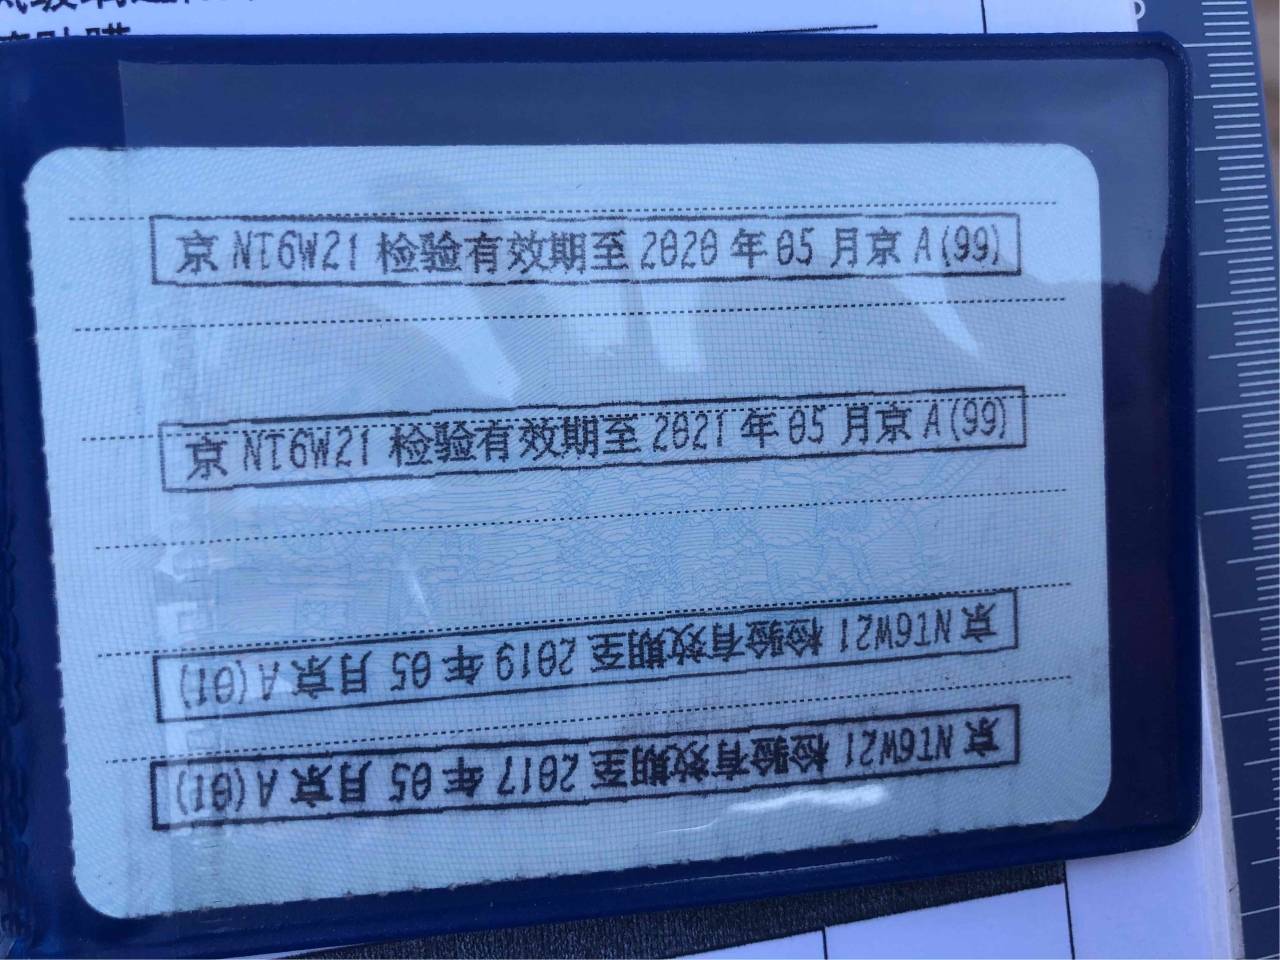 京 NT6W21 检验有效期至 2020 年 05 月京 A(99)
京 NT6W21 检验有效期至 2021 年 05 月京 A(99)
京 NT6W21 检验有效期至 2019 年 05 月京 A(01)
京 NT6W21 检验有效期至 2017 年 05 月京 A(01)